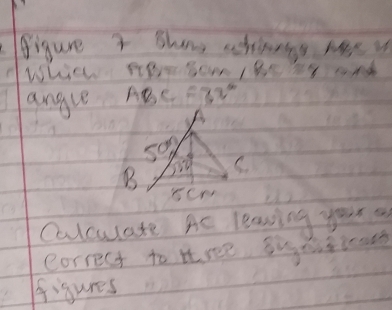 figure 7 Shows a triangle ABC in
Which AB = 5cm, BC = 8 and
angle ABC = 32°
A
5cm
32°
B C
8cm
Calculate AC leaving your
correct to three significant
figures